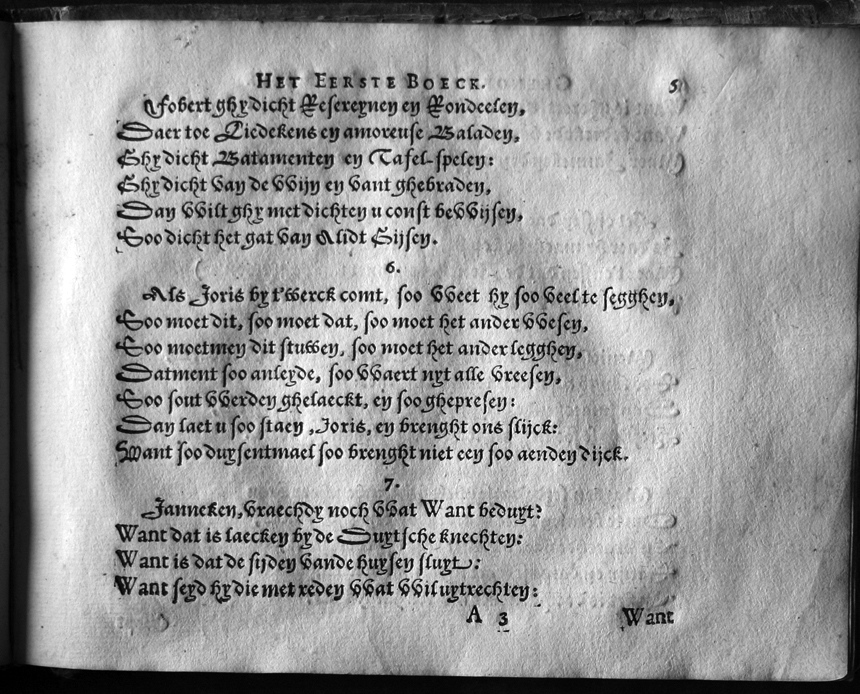 HET EERSTE BOECK. 5
Jobert ghy dicht Refereynen en Rondeelen,
Daer toe Liedekens en amoreuse Baladen,
Ghy dicht Batamenten en Tafel-spelen:
Ghy dicht van de VVijn en vant ghebraden,
Dan VVilt ghy met dichten u const beVVijsen,
Soo dicht het gat van Alidt Gijsen.
6.
Als Joris by t'werck comt, soo VVeet hy soo veel te segghen,
Soo moet dit, soo moet dat, soo moet het ander VVesen,
Soo moetmen dit stuwen, soo moet het ander legghen,
Datment soo anleyde, soo VVaert uyt alle vreesen,
Soo sout VVerden ghelaeckt, en soo ghepresen:
Dan laet u soo staen, Joris, en brenght ons slijck:
Want soo duysentmael soo brenght niet een soo aenden dijck.
7.
Janneken, vraechdy noch VVat Want beduyt?
Want dat is laecken by de Duytsche knechten:
Want is dat de sijden vande huysen sluyt:
Want seyd hy die met reden VVat VVil uytrechten:
A 3 Want